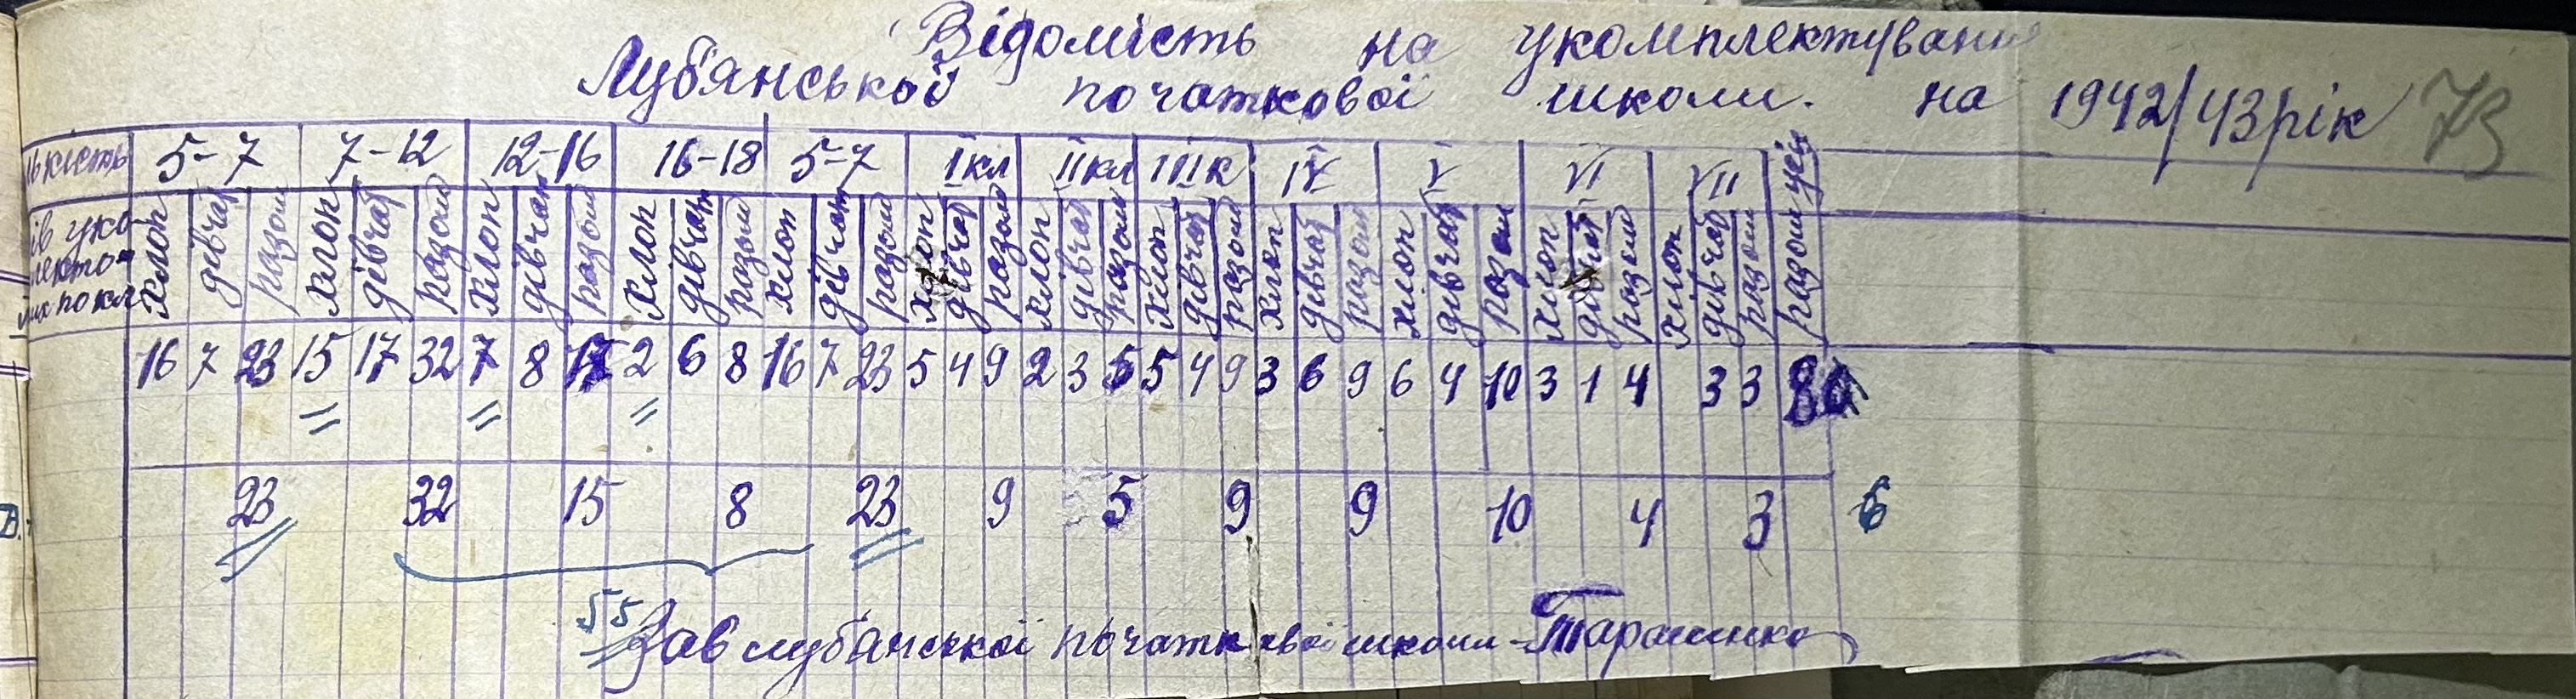 Відомість на укомплектування
Луб'янської початкової школи. на 1942/43 рік 73
ькість 5-7 7-12 12-16 16-18 5-7 Iкл IIкл IIIк IV V VI VII разом усіх
ів уко-
лекто-
них по кл хлоп дівчат разом хлоп дівчат разом хлоп дівчат разом хлоп дівчат разом хлоп дівчат разом хлоп дівчат разом хлоп дівчат разом хлоп дівчат разом хлоп дівчат разом хлоп дівчат разом хлоп дівчат разом хлоп дівчат разом
16 7 23 15 17 32 7 8 15 2 6 8 16 7 23 5 4 9 2 3 5 5 4 9 3 6 9 6 4 10 3 1 4 3 3 80
23 32 15 8 23 9 5 9 9 10 4 3 6
55
Зав лубянської початкової школи - Тарашенко